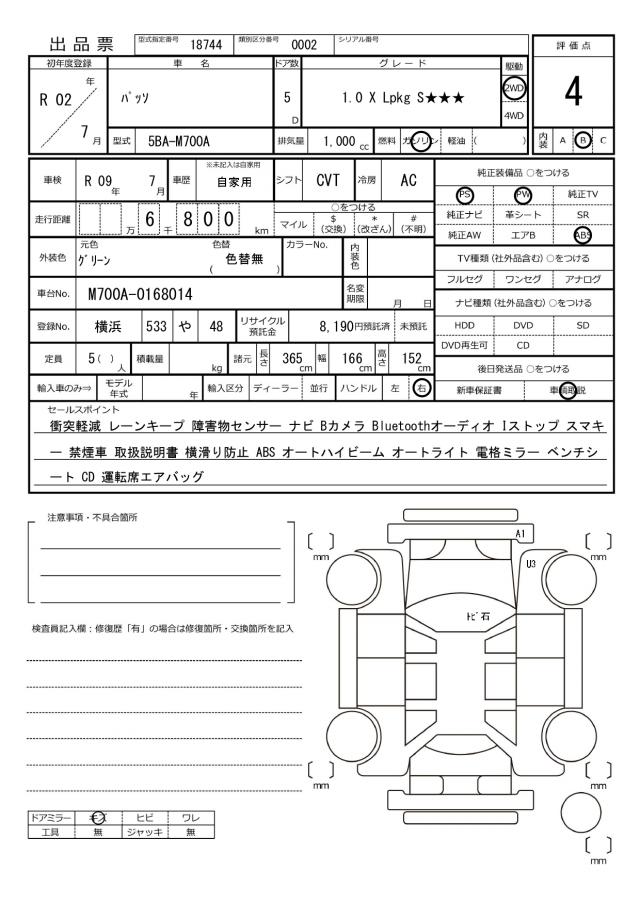 出品票 型式指定番号 18744 類別区分番号 0002 シリアル番号
評価点
4
内装 A B C
初年度登録 車名 ドア数 グレード 駆動
R 02 年 7 月
パッソ 5 D 1.0 X Lpkg S★★★ 2WD 4WD
型式 5BA-M700A 排気量 1,000 cc 燃料 ガソリン 軽油 ( )
車検 R 09 年 7 月 車歴 ※未記入は自家用 自家用 シフト CVT 冷房 AC
走行距離 万 6 千 8 0 0 km
○をつける
マイル $ (交換) * (改ざん) # (不明)
外装色 元色 グリーン 色替 ( 色替無 ) カラーNo. 内装色
車台No. M700A-0168014 名変期限 月 日
登録No. 横浜 533 や 48 リサイクル預託金 8,190円預託済 未預託
定員 5 ( ) 人 積載量 kg 諸元 長さ 365 cm 幅 166 cm 高さ 152 cm
輸入車のみ⇒ モデル年式 年 輸入区分 ディーラー 並行 ハンドル 左 右
純正装備品 ○をつける
PS PW 純正TV
純正ナビ 革シート SR
純正AW エアB ABS
TV種類 (社外品含む) ○をつける
フルセグ ワンセグ アナログ
ナビ種類 (社外品含む) ○をつける
HDD DVD SD
DVD再生可 CD
後日発送品 ○をつける
新車保証書 車輌取説
セールスポイント
衝突軽減 レーンキープ 障害物センサー ナビ Bカメラ Bluetoothオーディオ Iストップ スマキ
ー 禁煙車 取扱説明書 横滑り防止 ABS オートハイビーム オートライト 電格ミラー ベンチシ
ート CD 運転席エアバッグ
注意事項・不具合箇所
検査員記入欄：修復歴「有」の場合は修復箇所・交換箇所を記入
A1
U3
トビ石
mm
mm
mm
mm
mm
ドアミラー キズ ヒビ ワレ
工具 無 ジャッキ 無